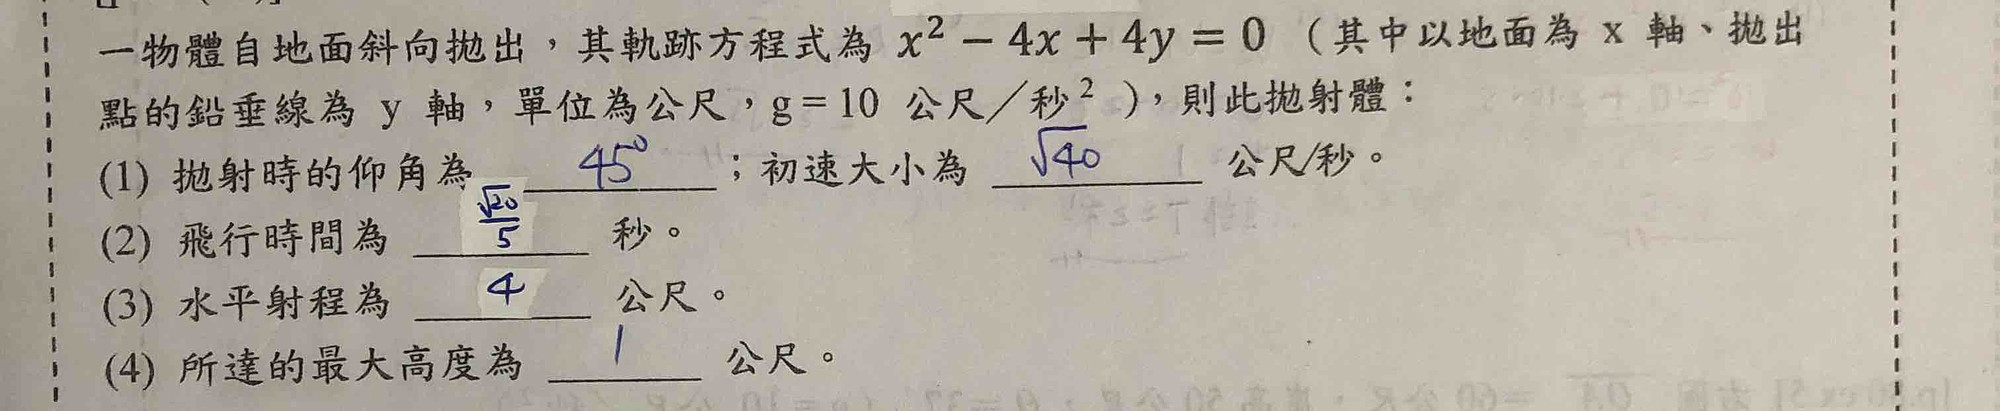 一物體自地面斜向拋出，其軌跡方程式為 x² − 4x + 4y = 0 （其中以地面為 x 軸、拋出
點的鉛垂線為 y 軸，單位為公尺，g = 10 公尺／秒²），則此拋射體：
(1) 拋射時的仰角為 45° ；初速大小為 √40 公尺/秒。
(2) 飛行時間為 √20/5 秒。
(3) 水平射程為 4 公尺。
(4) 所達的最大高度為 1 公尺。